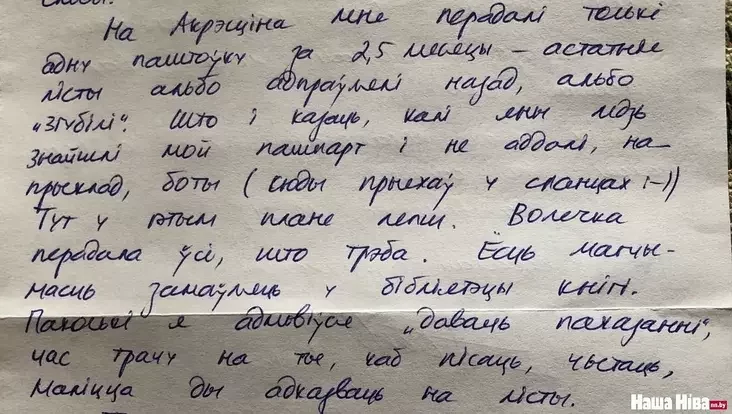 На Акрэсціна мне перадалі толькі
адну паштоўку за 2,5 месяцы – астатнія
лісты альбо адпраўлялі назад, альбо
"згубілі". Што і казаць, калі яны ледзь
знайшлі мой пашпарт і не аддалі, на-
прыклад, боты (сюды прыехаў у сланцах :-))
Тут у гэтым плане лепш. Волечка
перадала ўсё, што трэба. Ёсць магчы-
масць замаўляць у бібліятэцы кнігі.
Паколькі я адмовіўся "даваць паказанні",
час трачу на тое, каб пісаць, чытаць,
маліцца ды адказваць на лісты.
Наша Ніва nn.by